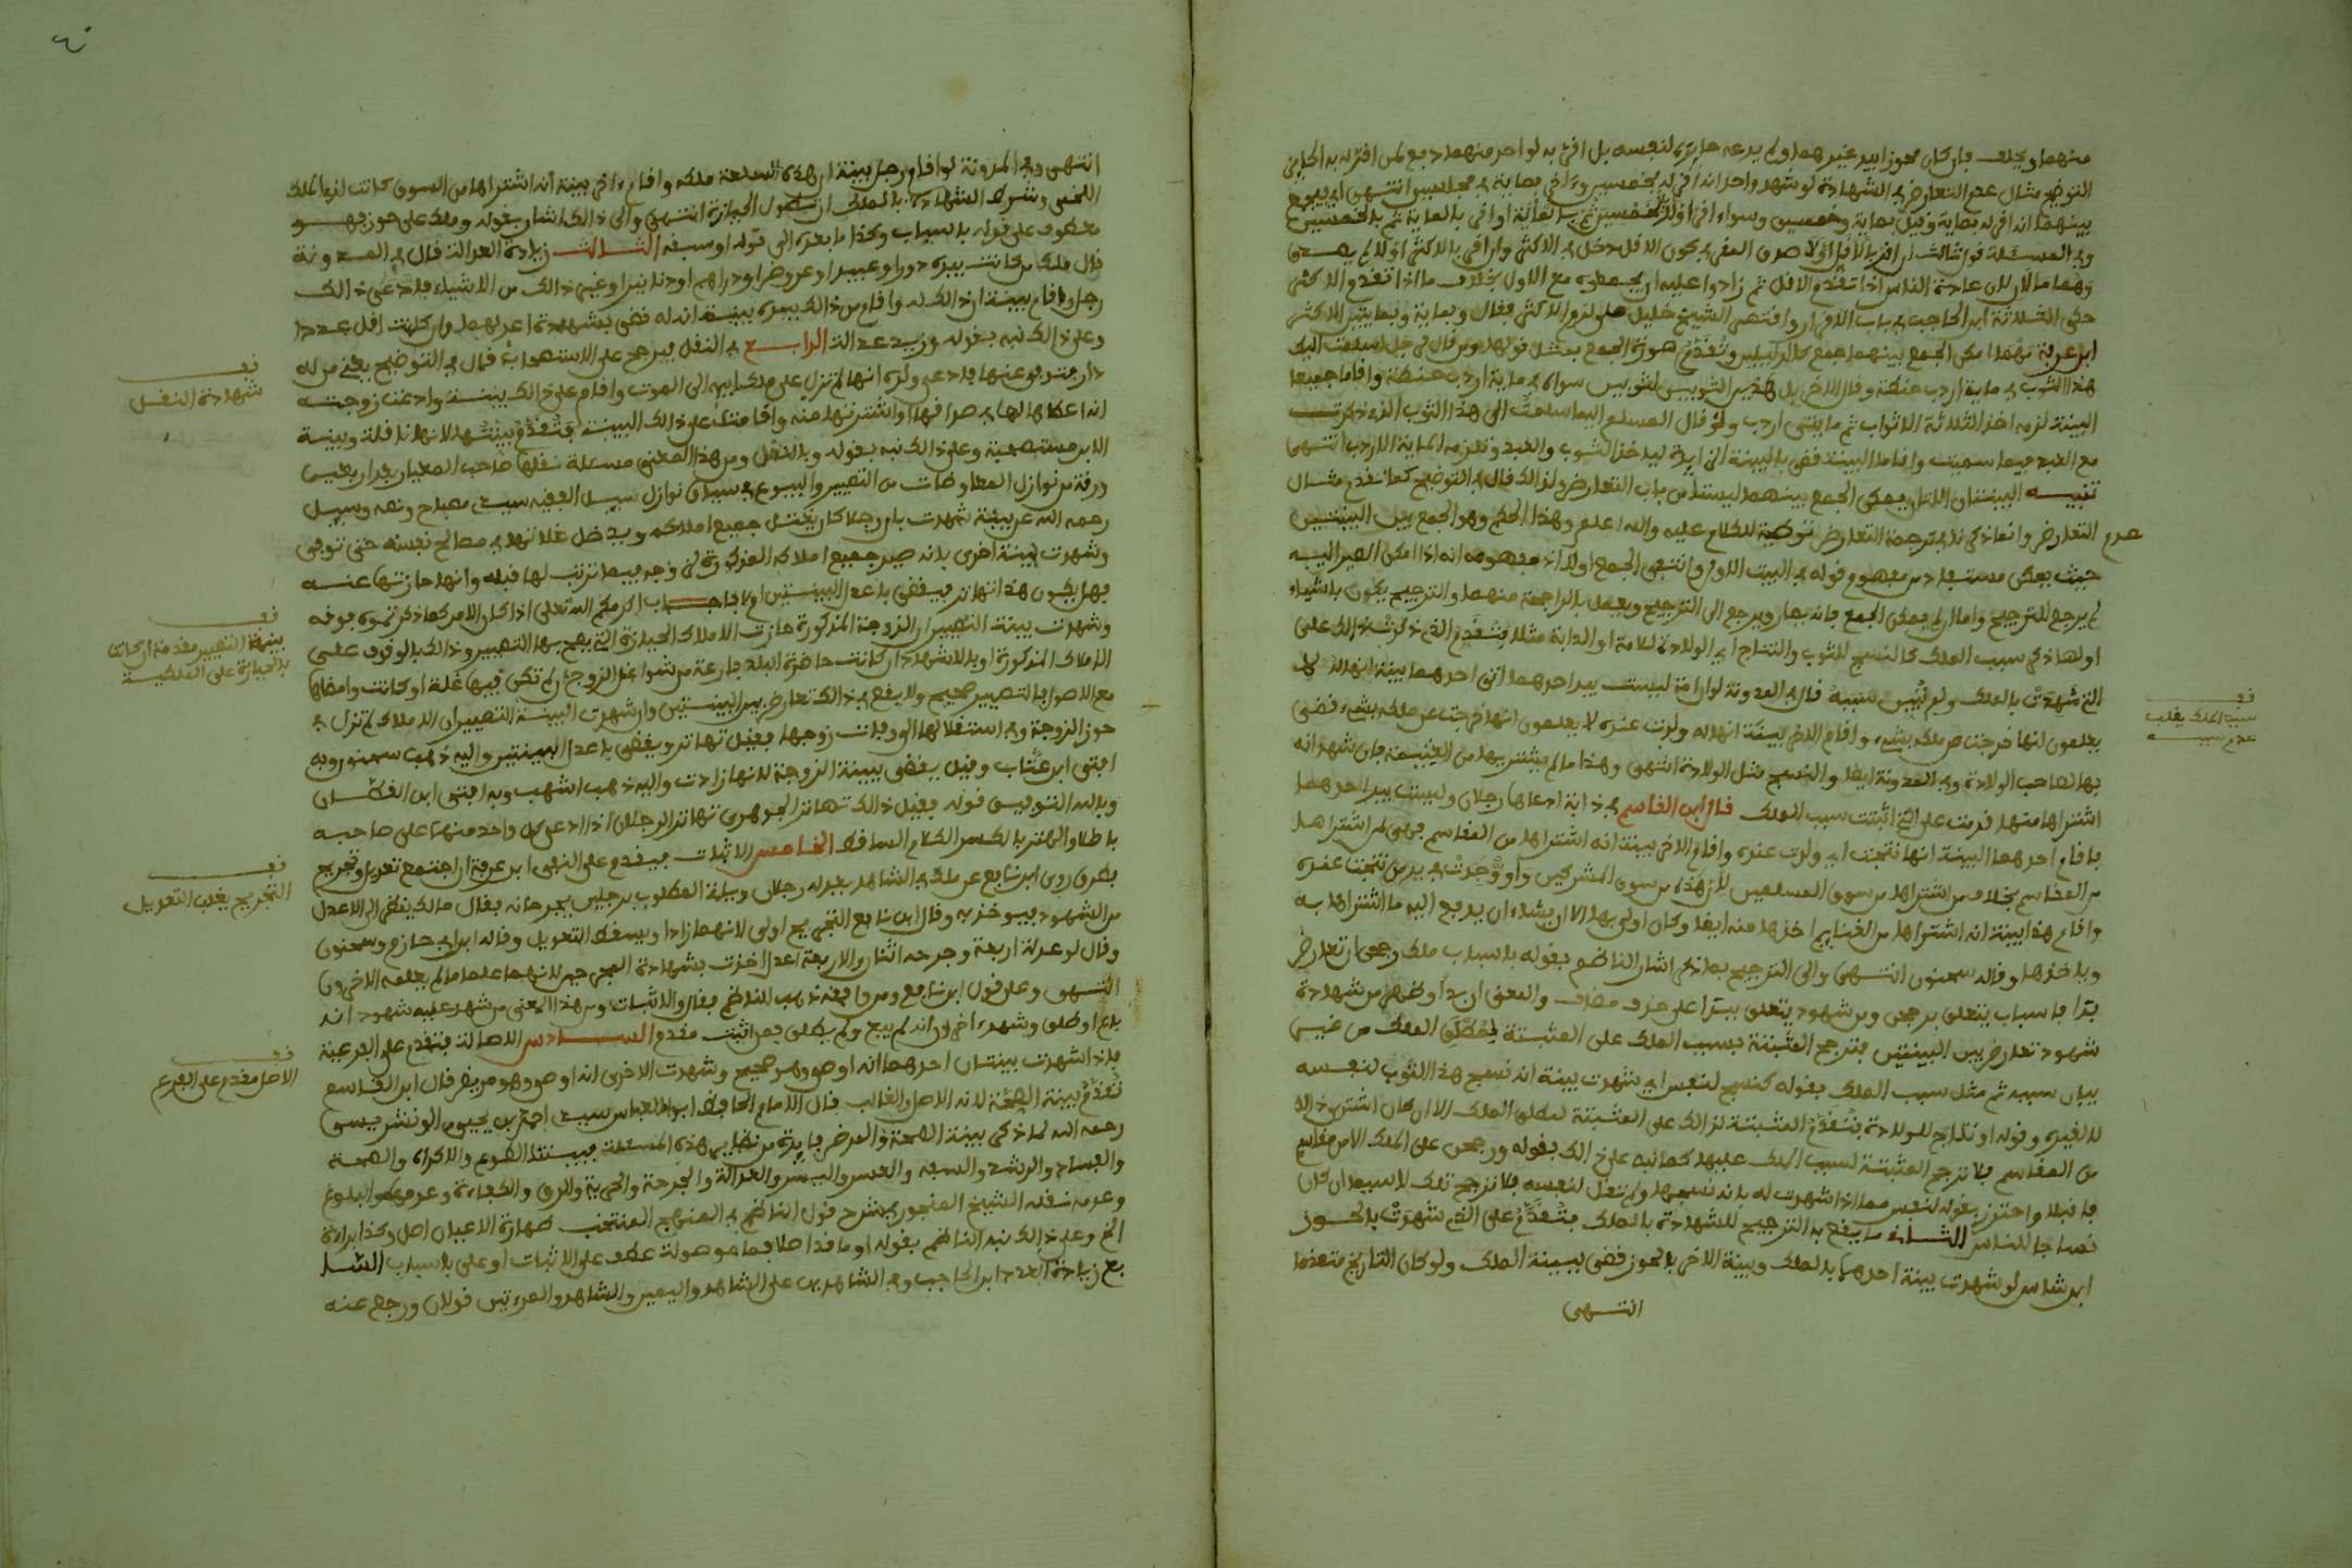 منهما ويحلف فإن كان محوزا بيد غيرهما ولم يدعه حايزه لنفسه بل اقر به لواحد منهما دفع لمن اقر له به الحايز
التوضيح مثال عدم التعارض في الشهادة لو شهد واحد انه اقر له بخمسين وءاخر بماية في مجلسين انتهى اي يجمع
بينهما انه اقر له بماية وقيل بماية وخمسين وسواء اقر اولا بخمسين ثم بالماية او اقر بالماية ثم بالخمسين
وفي المسئلة قول ثالث ان اقر بالاقل اولا صدق المقر في كون الاقل دخل في الاكثر وان اقر بالاكثر اولا لم يصدق
وهما مالان لان عادة الناس اذا تقدم الاقل ثم زادوا عليه ان يجمعوه مع الاول بخلاف ما اذا تقدم الاكثر
حكى الثلاثة ابن الحاجب في باب الاقرار واقتصر الشيخ خليل على لزوم الاكثر فقال وبماية وبمايتين الاكثر
ابن عرفة مهما امكن الجمع بينهما جمع كالدليلين وتقدم صورة الجمع بمثل قولها ومن قال لرجل اسلمت اليك
هذا الثوب في ماية اردب حنطة وقال الاخر بل هذين الثوبين لثوبين سواه في ماية اردب حنطة واقاما جميعا
البينة لزمه اخذ الثلاثة الاثواب في مايتي اردب ولو قال المسلم اليه اسلمت الي هذا الثوب الذي ذكرت
مع العبد فيما سميت واقاما البينة قضي بالبينة الزايدة لياخذ الثوب والعبد وتلزمه الماية الاردب انتهى
تنبيه البينتان اللتان يمكن الجمع بينهما ليستا من باب التعارض ولذا لك قال في التوضيح كما تقدم مثال
عدم التعارض وانما ذكرنا في ترجمة التعارض توطية للكلام عليه والله اعلم وهذا الحكم وهو الجمع بين البينتين
حيث يمكن مستفاد من مفهوم قوله في البيت الاول وانتفى الجمع اولا اذ مفهومه انه اذا امكن المصير اليه
لم يرجع للترجيح واما ان لم يمكن الجمع فانه يصار ويرجع الى الترجيح ويعمل بالراجحة منهما والترجيح يكون باشياء
اولها ذكر سبب الملك كالنسج للثوب والنتاج اي الولادة للامة او الدابة مثلا فتقدم التي ذكرت ذالك على
التي شهدت بالملك ولم تبين سببه قال في المدونة لو ان امة ليست بيد احدهما اتى احدهما ببينة انها له لا
يعلمون انها خرجت من ملكه بشيء واقام الاخر بينة انها له ولدت عنده لا يعلمون انها خرجت عن ملكه بشيء قضي
بها لصاحب الولادة وفي المدونة ايضا والنسج مثل الولادة انتهى وهذا ما لم يشتر بها من الغنيمة فان شهد انه
اشتراها منها قدمت على التي اثبتت سبب الملك قال ابن القاسم في دابة ادعاها رجلان وليست بيد احدهما
فاقام احدهما البينة انها نتجت اي ولدت عنده واقام الاخر بينة انه اشتراها من المقاسم فهي لمن اشتراها
من المقاسم بخلاف من اشتراها من سوق المسلمين لان هذه من سوق المشركين ولو وجدت في يد من نتجت عنده
واقام هذا بينة انه اشتراها من الغنايم اخذها منه ايضا وكان اولى بها الا ان يشاء ان يدفع اليه ما اشتراها به
وياخذها وقاله سحنون انتهى والى الترجيح بما ذكر اشار الناظم بقوله باسباب ملك رجحن ان تعارض
بدا فاسباب يتعلق برجحن ومن شهود يتعلق ببدا على حذف مضاف والمعنى ان بدا وظهر من شهادة
شهود تعارض بين البينتين فترجح المبينة بسبب الملك على المثبتة لمطلق الملك من غير
بيان سببه ثم مثل سبب الملك بقوله كنسج لنفس اي شهدت بينة انه نسج هذا الثوب لنفسه
لا لغيره وقوله او نتاج للولادة فتقدم المثبتة لذالك على المثبتة لمطلق الملك الا ان كان اشترى ذالك
من المقاسم فلا ترجح المثبتة لسبب الملك عليها كما نبه على ذالك بقوله ورجحن على الملك الا من مقاسم
فانقلا واحترز بقوله لنفس مما اذا شهدت له بانه نسجها ولم تقل لنفسه فلا ترجح تلك لا سيما ان كان
نساجا للناس الثاني ما يقع به الترجيح للشهادة بالملك فتقدم على التي شهدت بالحوز
ابن شاس لو شهدت بينة احدهما بالملك وبينة الاخر بالحوز قضي ببينة الملك ولو كان التاريخ متقدما
انتهى
قف
سبب الملك يغلب
عدم سببه
انتهى وفي المدونة لو اقام رجل بينة ان هذه السلعة ملكه واقام ءاخر بينة انه اشتراها من السوق كانت لذي الملك
اللخمي وشرط الشهادة بالملك ان تطول الحيازة انتهى والى ذالك اشار بقوله وملك على حوز فهو
معطوف على قوله باسباب وكذا ما بعده الى قوله او سبقه الثالث زيادة العدالة قال في المدونة
قال ملك من كانت بيده دورا وعبيدا وعروضا ودراهم او دنانير او غير ذالك من الاشياء فادعى ذالك
رجل واقام بينة ان ذالك له واقام من ذالك بيده بينة انه له قضي بشهادة اعدلهما وان كانت اقل عددا
وعلى ذالك نبه بقوله وزيد عدالة الرابع في النقل فيرجح على الاستصحاب قال في التوضيح يعني من له
دار متوفى عنها فادعى ولده انها لم تزل على ملك ابيه الى الموت واقام على ذالك بينة وادعت زوجته
انه اعطاها لها في صداقها او اشترتها منه واقامت على ذالك البينة فتقدم بينتها لانها ناقلة وبينة
الابن مستصحبة وعلى ذالك نبه بقوله وبالنقل ومن هذا المعنى مسئلة نقلها صاحب المعيار بعد اربعين
ورقة من نوازل المعاوضات من التصيير والبيوع في سياق نوازل سيل الفقيه سيدي مصباح ونصه وسيل
رحمه الله عن بينة شهدت بان رجلا كان يغتل جميع املاكه ويدخل غلاتها في مصالح نفسه حتى توفي
وشهدت بينة اخرى بانه صير جميع املاكه المذكورة لزوجه فيما ترتب لها قبله وانها حازتها عنه
فهل يكون هذا تهاتر فيقضى باعدل البينتين ام لا فاجاب اكرمكم الله تعلى اذا كان الامر كما ذكرتموه فوقه
وشهدت بينة التصيير ان الزوجة المذكورة حازت الاملاك الحيازة التي يصح بها التصيير وذالك بالوقوف على
الاملاك المذكورة او بالاشهاد ان كانت حاضرة البلد فارغة من شواغل الزوج ان لم تكن فيها غلة او كانت وامضاها
مع الاصول فالتصيير صحيح ولا يقع في ذالك تعارض بين البينتين وان شهدت البينة التصييران الاملاك لم تزل في
حوز الزوجة وفي استغلالها الى وفات زوجها فقيل تهاتر ويقضى باعدل البينتين واليه ذهب سحنون وبه
افتى ابن عتاب وقيل يقضى ببينة الزوجة لانها زادت واليه ذهب اشهب وبه افتى ابن القطان
وبالله التوفيق قوله فقيل ذالك تهاتر الجوهري تهاتر الرجلان اذا ادعى كل واحد منهما على صاحبه
باطلا والهتر بالكسر الكلام الساقط الخامس الاثبات فيقدم على النفي ابن عرفة ان اجتمع تعديل وتجريح
بطرق روى ابن نافع عن ملك في الشاهد يعدله رجلان وياتي المطلوب برجلين يجرحانه فقال مالك ينظر الى الاعدل
من الشهود فيوخذ به وقال ابن نافع التجريح اولى لانهما زادا ويسقط التعديل وقاله ابن ابي حازم وسحنون
وقال لو عدله اربعة وجرحه اثنان والاربعة اعدل اخذت بشهادة المجرحين لانهما علما ما لم يعلمه الاخرون
انتهى وعلى قول ابن نافع ومن وافقه ذهب الناظم فقال والاثبات ومن هذا المعنى من شهد عليه شهود انه
باع او طلق وشهد ءاخرون انه لم يبع ولم يطلق فمن اثبت مقدم السادس الاصالة فتقدم على الفرعية
فاذا شهدت بينتان احدهما انه اوصى وهو صحيح وشهدت الاخرى انه اوصى وهو مريض قال ابن القاسم
تقدم بينة الصحة لانه الاصل والغالب قال الامام الحافظ ابو العباس سيدي احمد بن يحيى الونشريسي
رحمه الله لما ذكر بينة الصحة والمرض فايدة من نظاير هذه المسئلة فبينتا الطوع والاكراه والصحة
والفساد والرشد والسفه والعسر واليسر والعدالة والجرحة والحرية والرق والكفاءة وعدمها والبلوغ
وعدمه نقله الشيخ المنجور في شرح قول الناظم في المنهج المنتخب طهارة الاعيان اصل وكذا براءة
الخ وعلى ذالك نبه الناظم بقوله او ما قد اصلا فما موصولة عطف على الاثبات او على باسباب السا
بع زيادة العدد ابن الحاجب وفي الشاهدين على الشاهد واليمين والشاهد والمرءتين قولان ورجع عنه
قف
شهادة النقل
قف
بينة التصيير مقدمة ان كانت
بالحيازة على الملكية
قف
التجريح يغلب التعديل
قف
الاصل مقدم على الفرع